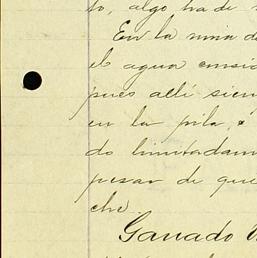 to, algo ha de
En la mina d
el agua
pues allí sien
en la pila,
do limitadam
pesar de que
che.
Ganado